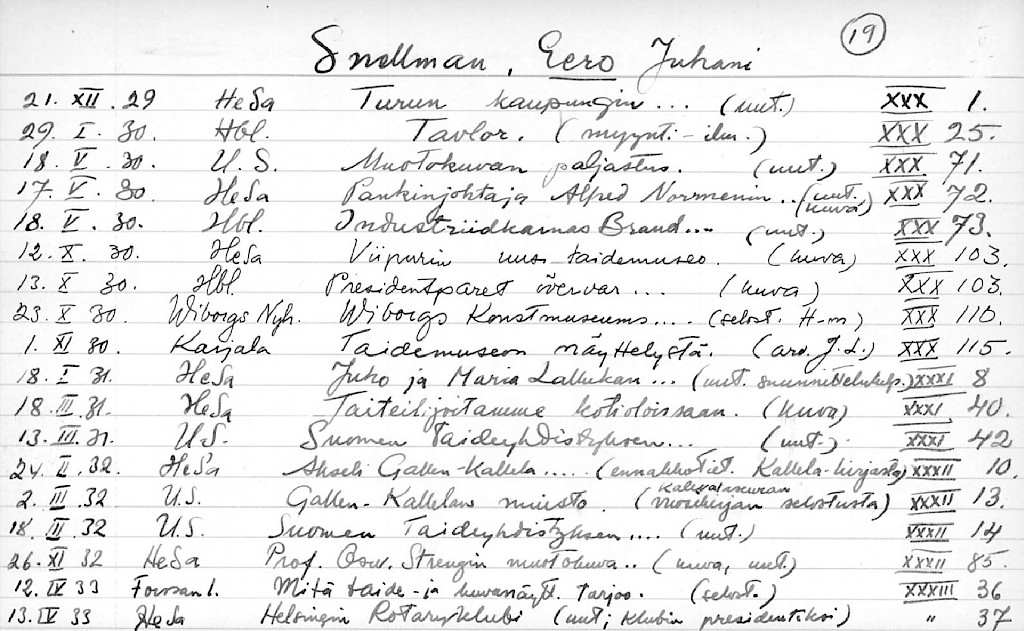 19
Snellman, Eero Juhani
21. XII. 29 HeSa Turun kaupungin... (uut.) XXX 1.
29. I. 30. Hbl. Tavlor. (myynti-ilm.) XXX 25.
18. V. 30. U.S. Muotokuvan paljastus. (uut.) XXX 71.
17. V. 30 HeSa Pankinjohtaja Alfred Normenin.. (uut. kuva) XXX 72.
18. V. 30. Hbl. Industriidkarnas Brand.... (uut.) XXX 73.
12. X. 30. HeSa Viipurin uusi taidemuseo. (kuva) XXX 103.
13. X 30. Hbl. Presidentparet övervar... (kuva) XXX 103.
23. X 30. Wiborgs Nyh. Wiborgs Konstmuseums.... (selost. H-m) XXX 110.
1. XI 30. Karjala Taidemuseon näyttelystä. (arv. J.L.) XXX 115.
18. I 31. HeSa Juho ja Maria Lallukan... (uut. suunnittelukilp.) XXXI 8
18. III. 31. HeSa Taiteilijoitamme kotioloissaan. (kuva) XXXI 40.
13. III. 31. U.S. Suomen Taideyhdistyksen... (uut.) XXXI 42
24. II. 32. HeSa Akseli Gallen-Kallela..... (ennakkotiet. Kallela-kirjasta) XXXII 10.
2. III 32 U.S. Gallen-Kallelan muisto. (Kalevalaseuran vuosikirjan selostusta) XXXII 13.
18. III. 32 U.S. Suomen Taideyhdistyksen.... (uut.) XXXII 14
26. XI 32 HeSa Prof. Osw. Strengin muotokuva.. (kuva, uut.) XXXII 85.
12. IV 33 Forssan l. Mitä taide- ja kuvanäytt. tarjoo. (selost.) XXXIII 36
13. IV 33 HeSa Helsingin Rotaryklubi (uut; klubin presidentiksi) " 37